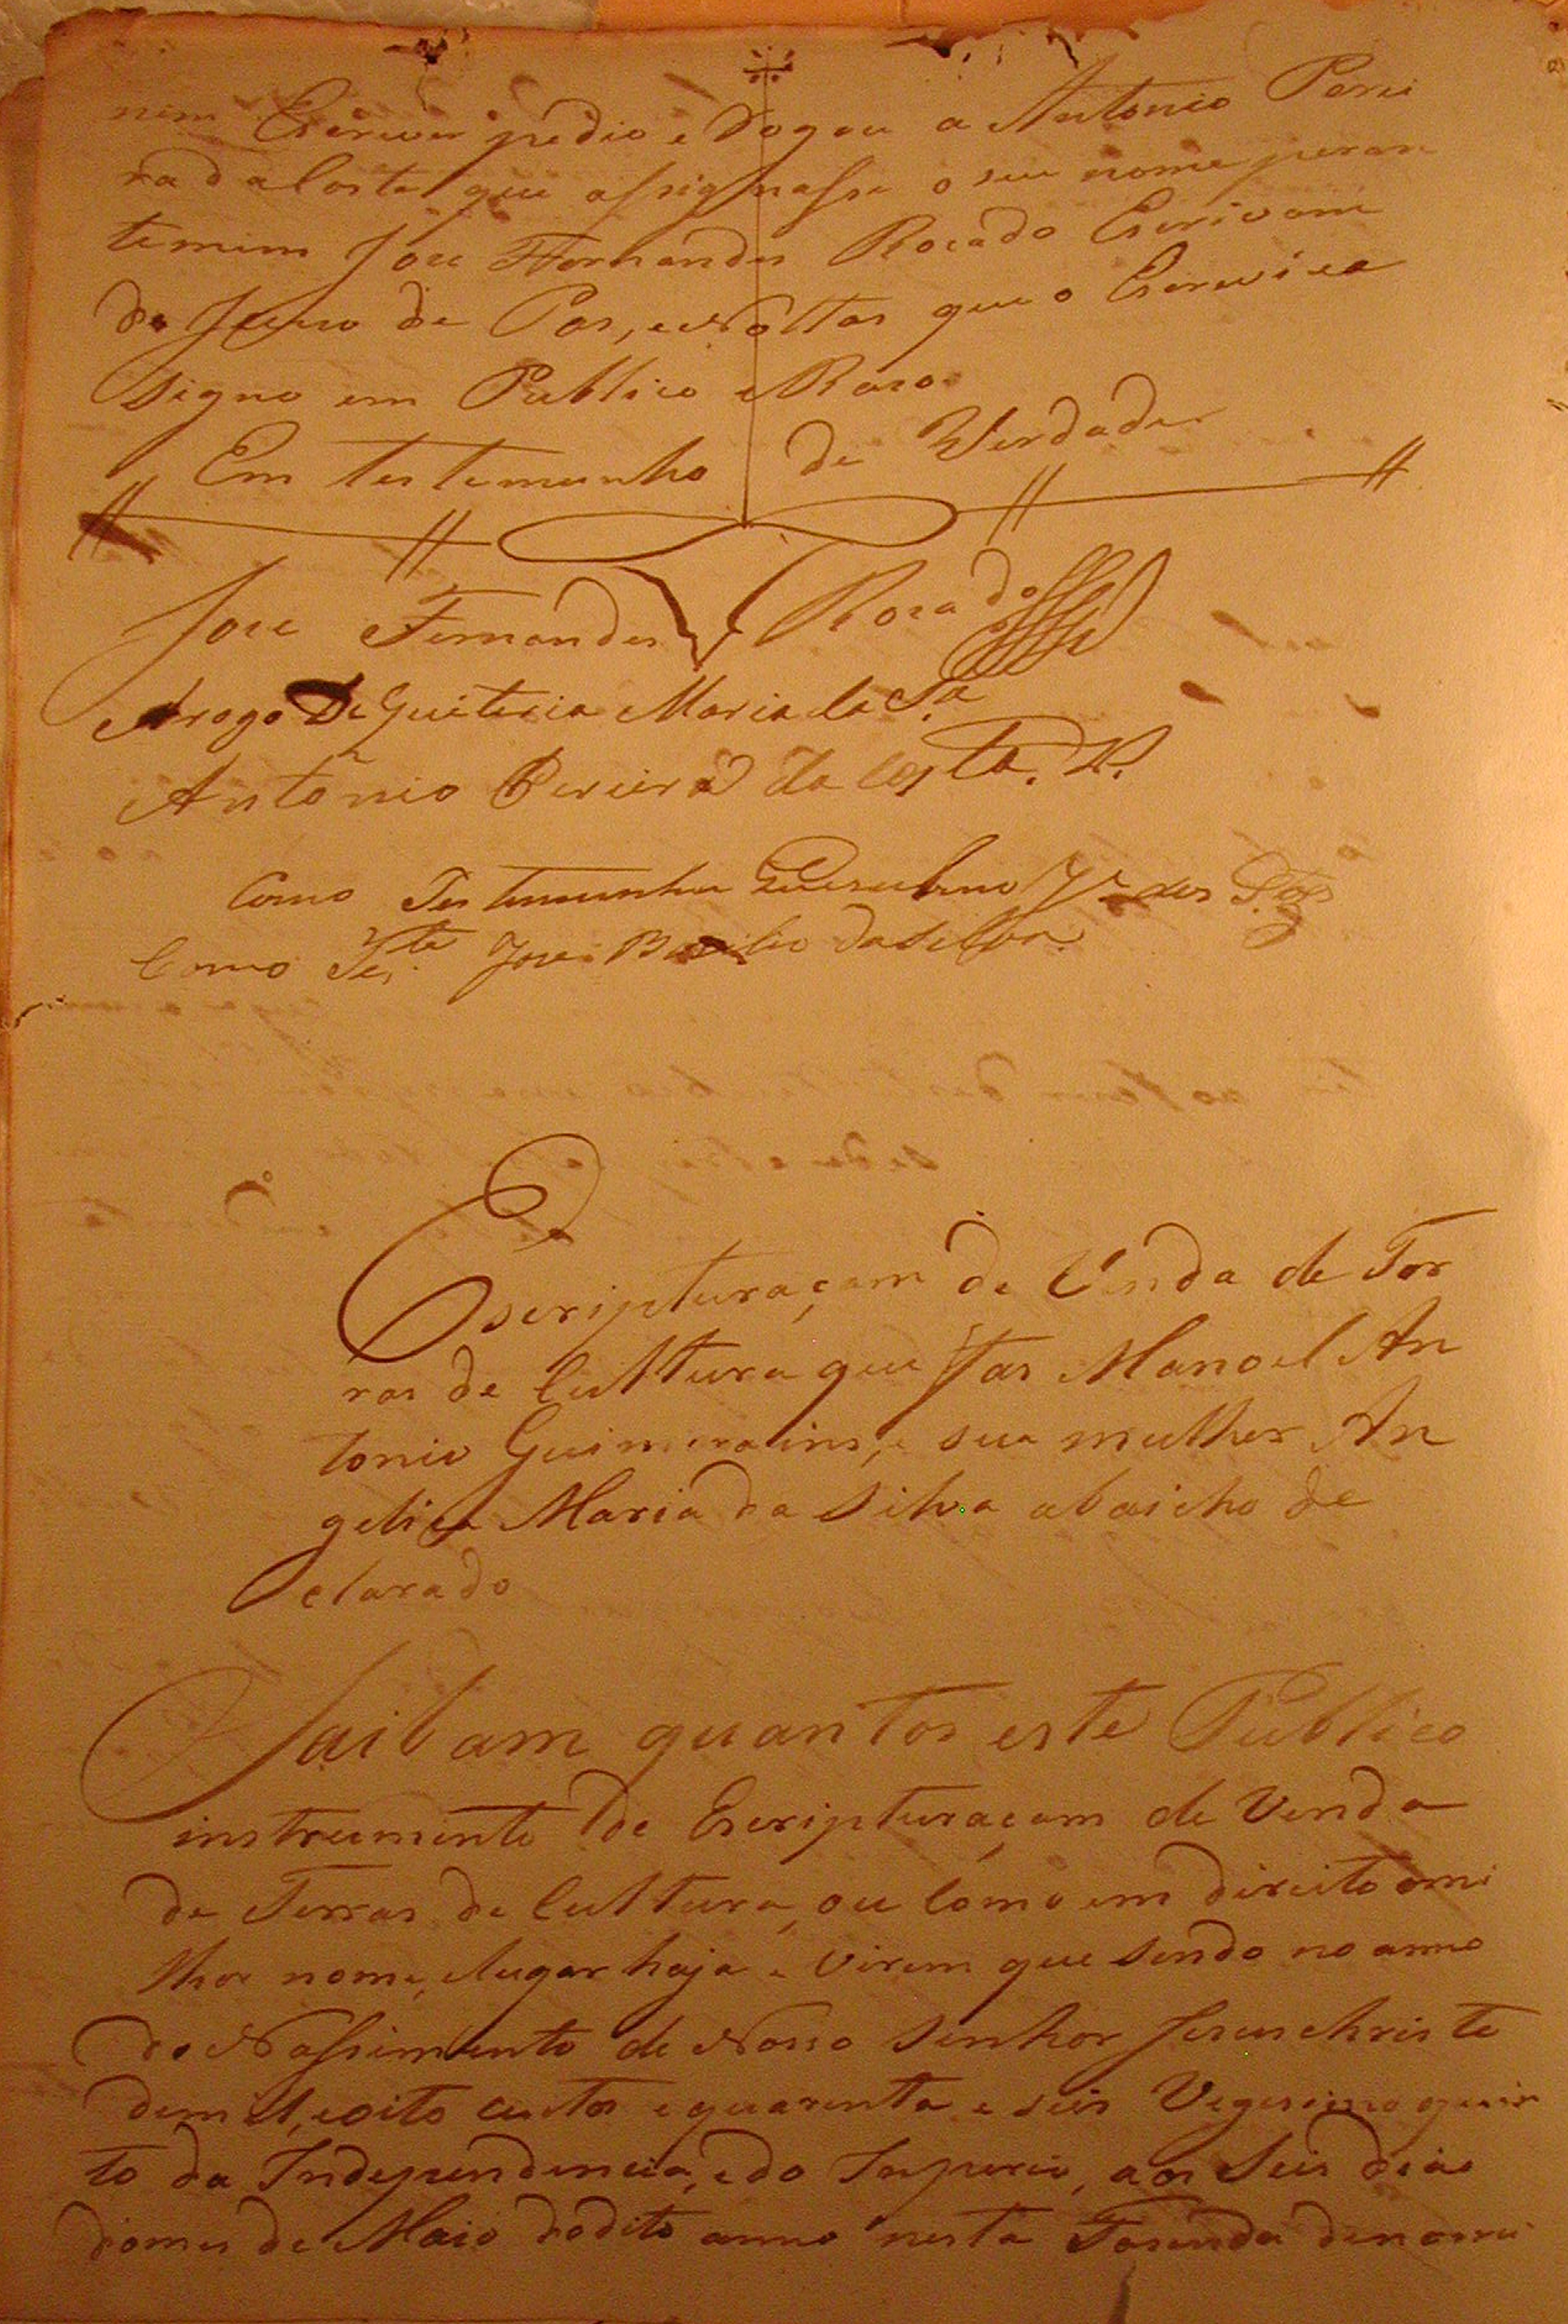 nem Escrever pedio e Rogou a Antonio Perei
ra da Costa que assignasse o seu nome peran
te mim Jose Fernandes Rosado Escrivam
do Juizo de Pas, e Nottas que o Escrevi e a
signo em Publico e Raso
Em testemunho de Verdade
Jose Fernandes Rosado
Arogo De Guiteria Maria da S.a
Antonio Pereira da Costa.
Como Testemunha dos S.tos
Como Tes.te Jose Bazilio da Silva
Escripturaçam de Venda de Ter
ras de Culttura que fas Manoel An
tonio Guimerains, e sua mulher An
gelica Maria da Silva abaicho de
clarado
Saibam quantos este Publico
instrumento de Escripturaçam de Venda
de Terras de Culttura, ou Como em direito omi
lhor nome, elugar haja e Virem que sendo no anno
do Nassimento de Nosso Senhor Jesus christo
de mil, e oito centos e quarenta e seis Vegesimo quin
to da Independencia, e do Imperio, aos Seis dias
domes de Maio dodito anno nesta Fasenda denomi